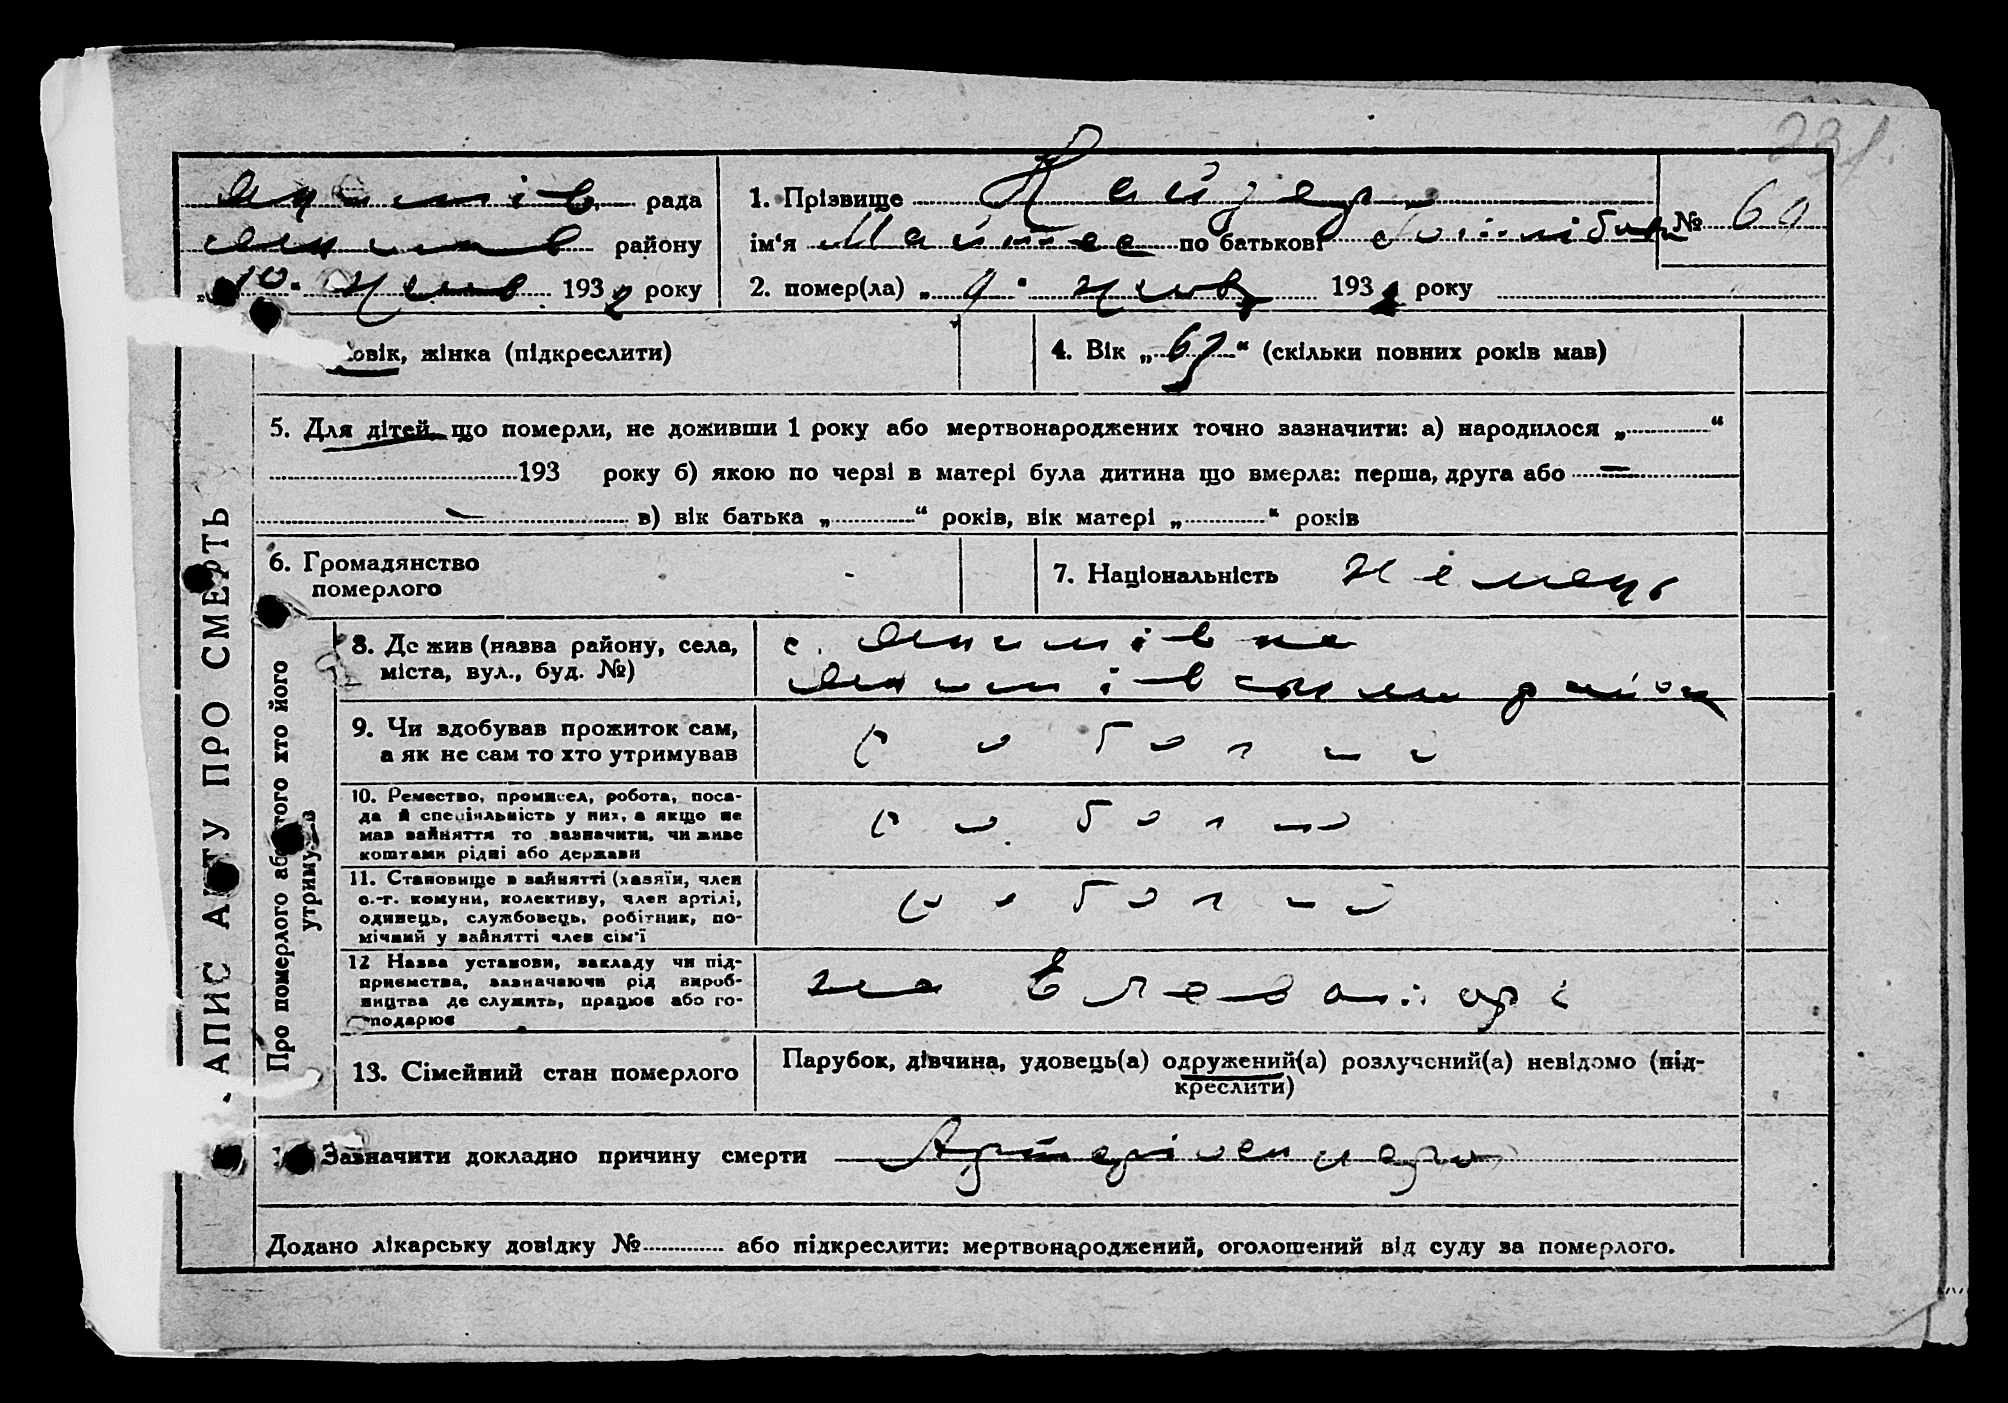 231.
рада
району
"10." 193 року
1. Прізвище Кайзер
ім'я по батькові
№ 60
2. помер(ла) " 193 року
ловік, жінка (підкреслити)
4. Вік „67“ (скільки повних років мав)
5. Для дітей що померли, не доживши 1 року або мертвонароджених точно зазначити: а) народилося „ “
193 року б) якою по черзі в матері була дитина що вмерла: перша, друга або —
— в) вік батька „ “ років, вік матері „ “ років
6. Громадянство
померлого
-
7. Національність німець
ЗАПИС АКТУ ПРО СМЕРТЬ
Про померлого або того хто його
утримував
8. Де жив (назва району, села,
міста, вул., буд. №)
с.
район
9. Чи здобував прожиток сам,
а як не сам то хто утримував
10. Ремество, промисел, робота, поса-
да й спеціяльність у них, а якщо не
мав зайняття то зазначити, чи живе
коштами рідні або держави
11. Становище в зайнятті (хазяїн, член
с.-г. комуни, колективу, член артілі,
одинець, службовець, робітник, по-
мічний у зайнятті член сім'ї
12 Назва установи, закладу чи під-
приємства, зазначаючи рід вироб-
ництва де служить, працює або го-
сподарює
на Елеваторі
13. Сімейний стан померлого
Парубок, дівчина, удовець(а) одружений(а) розлучений(а) невідомо (під-
креслити)
Зазначити докладно причину смерти
Додано лікарську довідку № або підкреслити: мертвонароджений, оголошений від суду за померлого.